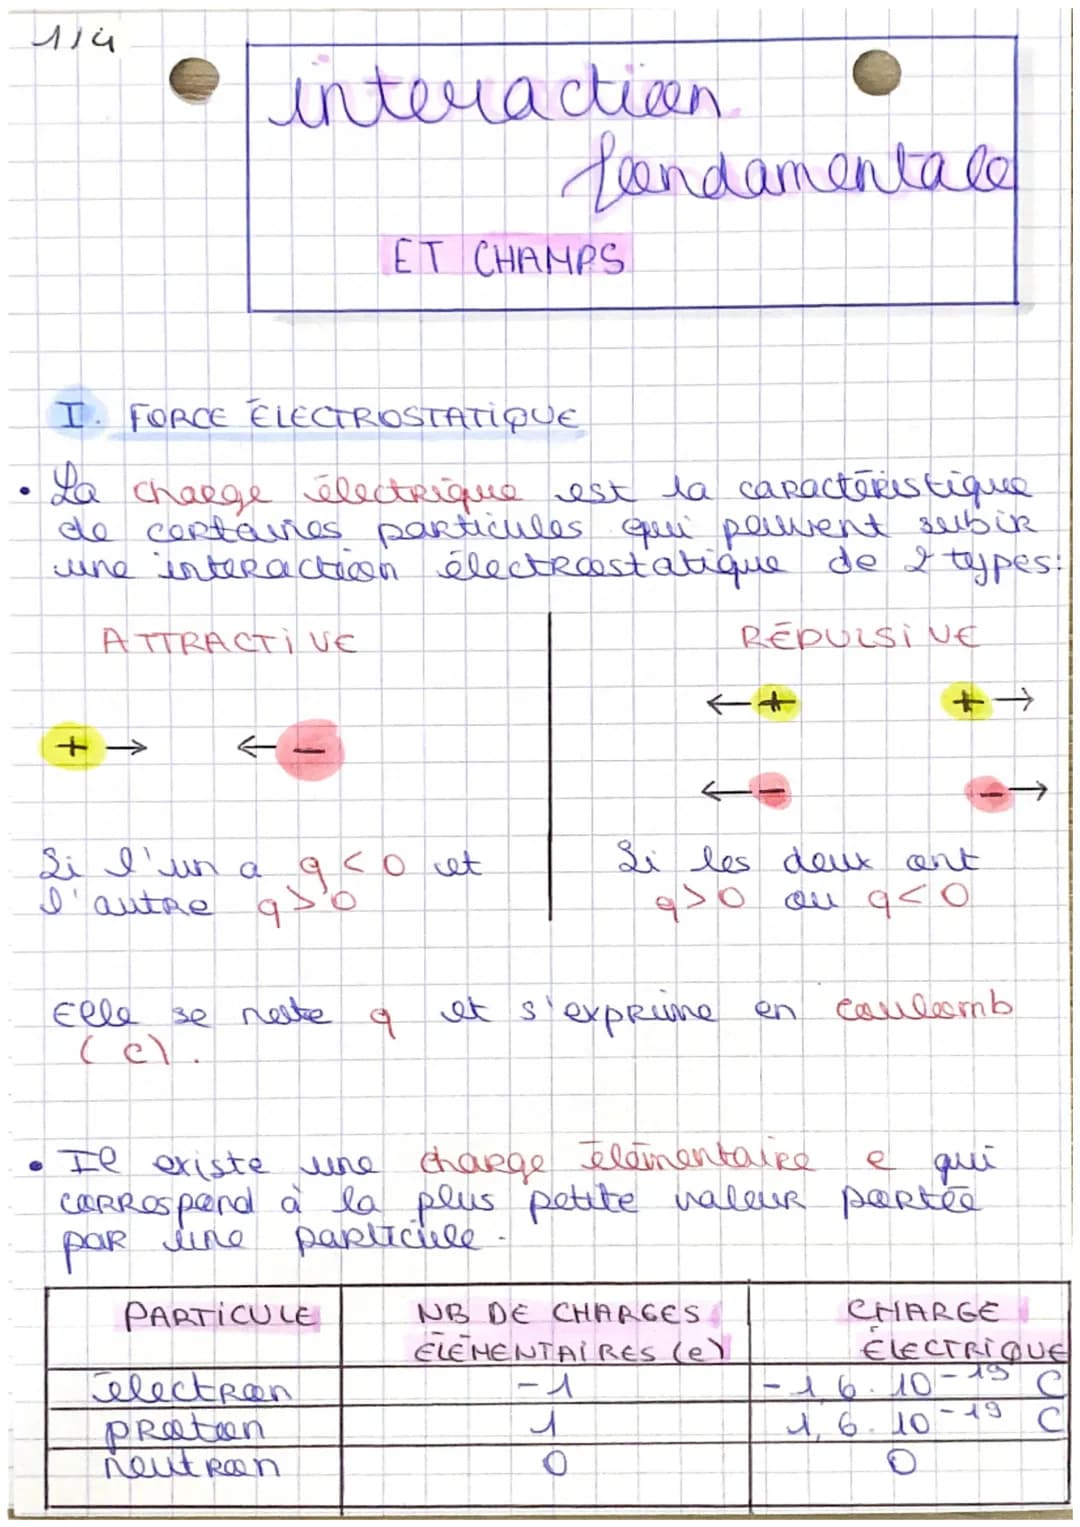 1/4
interaction
fondamentale
ET CHAMPS
I. FORCE ÉLECTROSTATIQUE
• La charge électrique est la caractéristique
de certaines particules qui peuvent subir
une interaction électrostatique de 2 types:
ATTRACTIVE
RÉPULSIVE
← + + →
+ → ← -
← - - →
Si l'un a q < 0 et
l'autre q > 0
Si les deux ont
q > 0 ou q < 0
Elle se note q et s'exprime en coulomb
(C).
• Il existe une charge élémentaire e qui
correspond à la plus petite valeur portée
par une particule.
PARTICULE NB DE CHARGES ÉLÉMENTAIRES (e) CHARGE ÉLECTRIQUE
électron -1 -1,6.10⁻¹⁹ C
proton 1 1,6.10⁻¹⁹ C
neutron 0 0